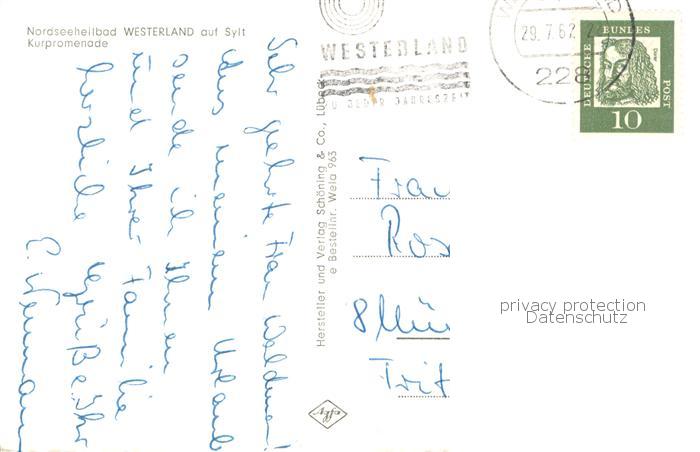 Nordseeheilbad WESTERLAND auf Sylt
Kurpromenade
Sehr geehrte Frau Waldmann!
Aus meinem Urlaub
sende ich Ihnen
und Ihrer Familie
herzliche Grüße. Ihr
Hersteller und Verlag Schöning & Co., Lübeck
e Bestellnr. Wela 963
WESTERLAND
ZU JEDER JAHRESZEIT
29.7.62
228
DEUTSCHE BUNDESPOST
Dürer
10
Frau
Ros
8 Mün
Frit
privacy protection
Datenschutz